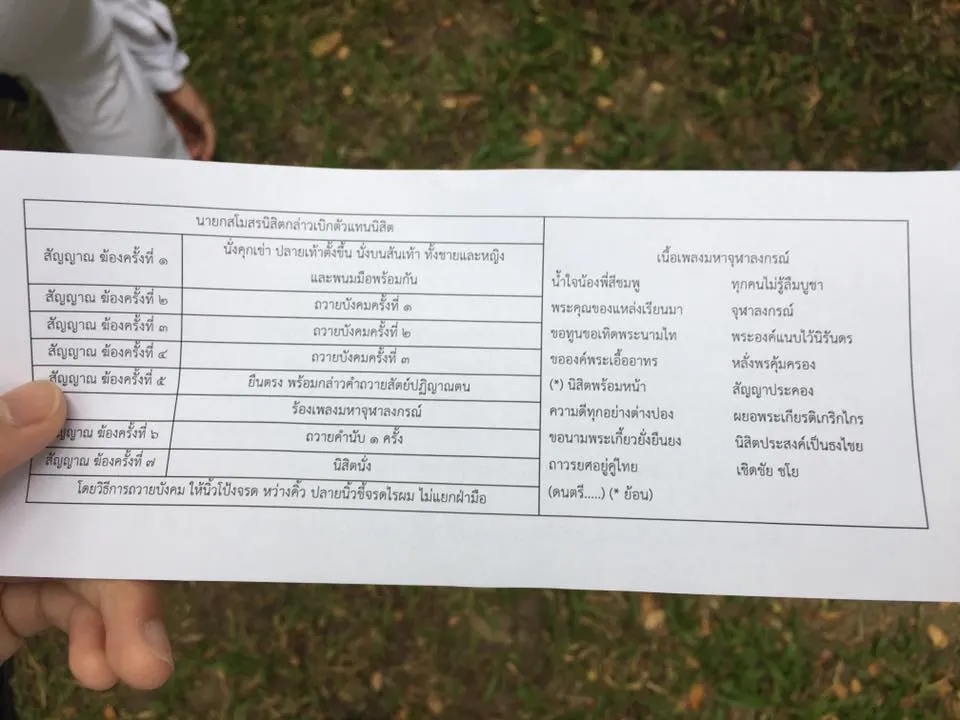 นายกสโมสรนิสิตกล่าวเบิกตัวแทนนิสิต
สัญญาณ ฆ้องครั้งที่ ๑
นั่งคุกเข่า ปลายเท้าตั้งขึ้น นั่งบนส้นเท้า ทั้งชายและหญิง
และพนมมือพร้อมกัน
สัญญาณ ฆ้องครั้งที่ ๒ ถวายบังคมครั้งที่ ๑
สัญญาณ ฆ้องครั้งที่ ๓ ถวายบังคมครั้งที่ ๒
สัญญาณ ฆ้องครั้งที่ ๔ ถวายบังคมครั้งที่ ๓
สัญญาณ ฆ้องครั้งที่ ๕ ยืนตรง พร้อมกล่าวคำถวายสัตย์ปฏิญาณตน
ร้องเพลงมหาจุฬาลงกรณ์
สัญญาณ ฆ้องครั้งที่ ๖ ถวายคำนับ ๑ ครั้ง
สัญญาณ ฆ้องครั้งที่ ๗ นิสิตนั่ง
โดยวิธีการถวายบังคม ให้นิ้วโป้งจรด หว่างคิ้ว ปลายนิ้วชี้จรดไรผม ไม่แยกฝ่ามือ
เนื้อเพลงมหาจุฬาลงกรณ์
น้ำใจน้องพี่สีชมพู ทุกคนไม่รู้ลืมบูชา
พระคุณของแหล่งเรียนมา จุฬาลงกรณ์
ขอทูนขอเทิดพระนามไท พระองค์แนบไว้นิรันดร
ขอองค์พระเอื้ออาทร หลั่งพรคุ้มครอง
(*) นิสิตพร้อมหน้า สัญญาประคอง
ความดีทุกอย่างต่างปอง ผยอพระเกียรติเกริกไกร
ขอนามพระเกี้ยวยั่งยืนยง นิสิตประสงค์เป็นธงไชย
ถาวรยศอยู่คู่ไทย เชิดชัย ชโย
(ดนตรี.....) (* ย้อน)